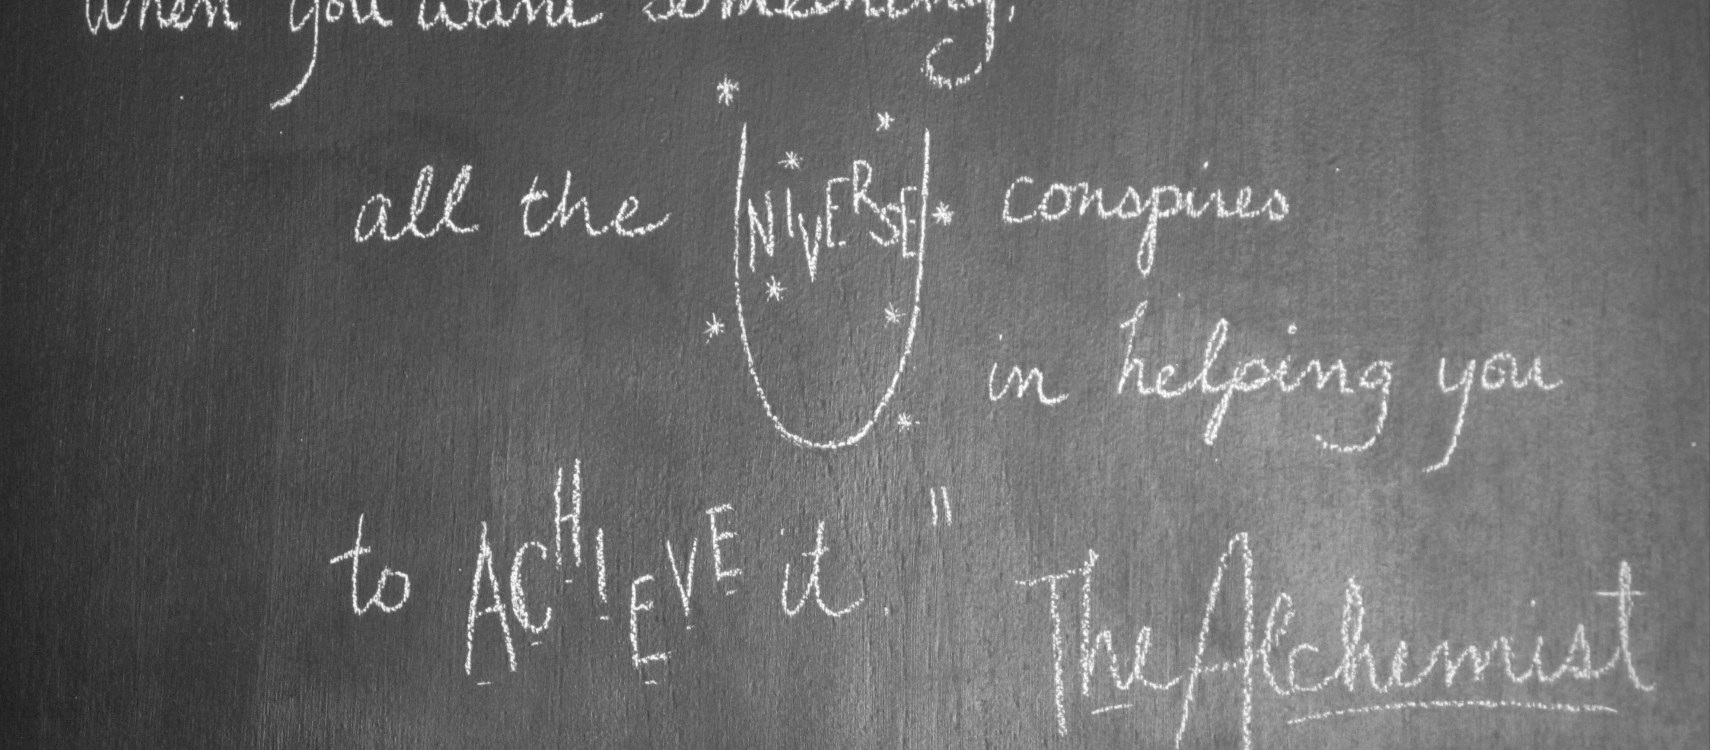 When you want something,
all the UNIVERSE conspires
in helping you
to ACHIEVE it."
The Alchemist